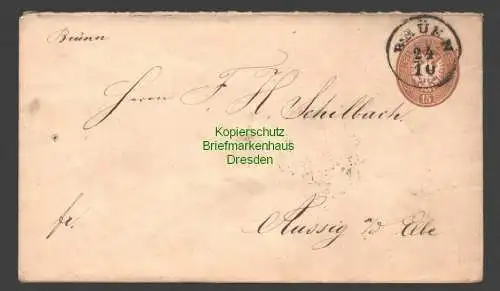 Brünn
BRÜNN
24
10
15
Herrn F. H. Schilbach.
Kopierschutz
Briefmarkenhaus
Dresden
fr.
Aussig a/d Elbe